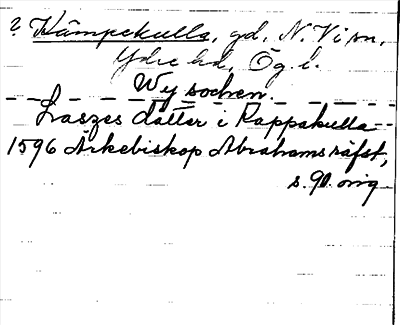 ? Kämpekulla, gd, N. Vi sn,
Ydre hd, Ög. l.
Wij sochen.
Laszes dåtter i Kappakulla
1596 Ärkebiskop Abrahams räfst,
s. 90. orig